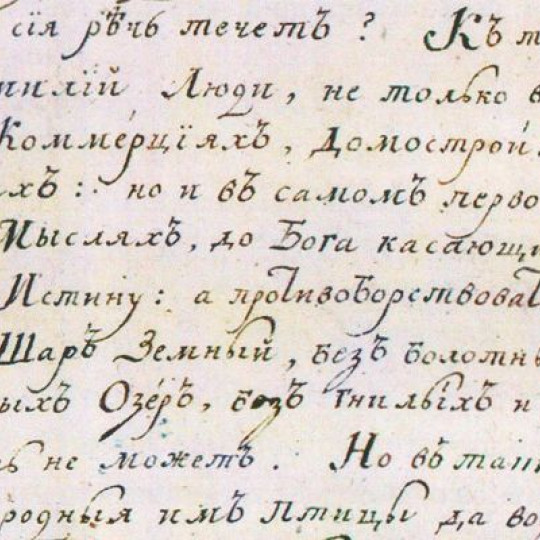 сїя рѣчь течетъ? Къ т
нилїй Люди, не только в
Коммéрцїяхъ, Домострой
хъ: но и въ самомъ перво
Мысляхъ, до Бога касающи
Истину: а противоборствова
Шаръ Земный, безъ болотны
ыхъ Озéръ, безъ гнилыхъ и
ь не можетъ. Но въ таки
родныя имъ птицы да во